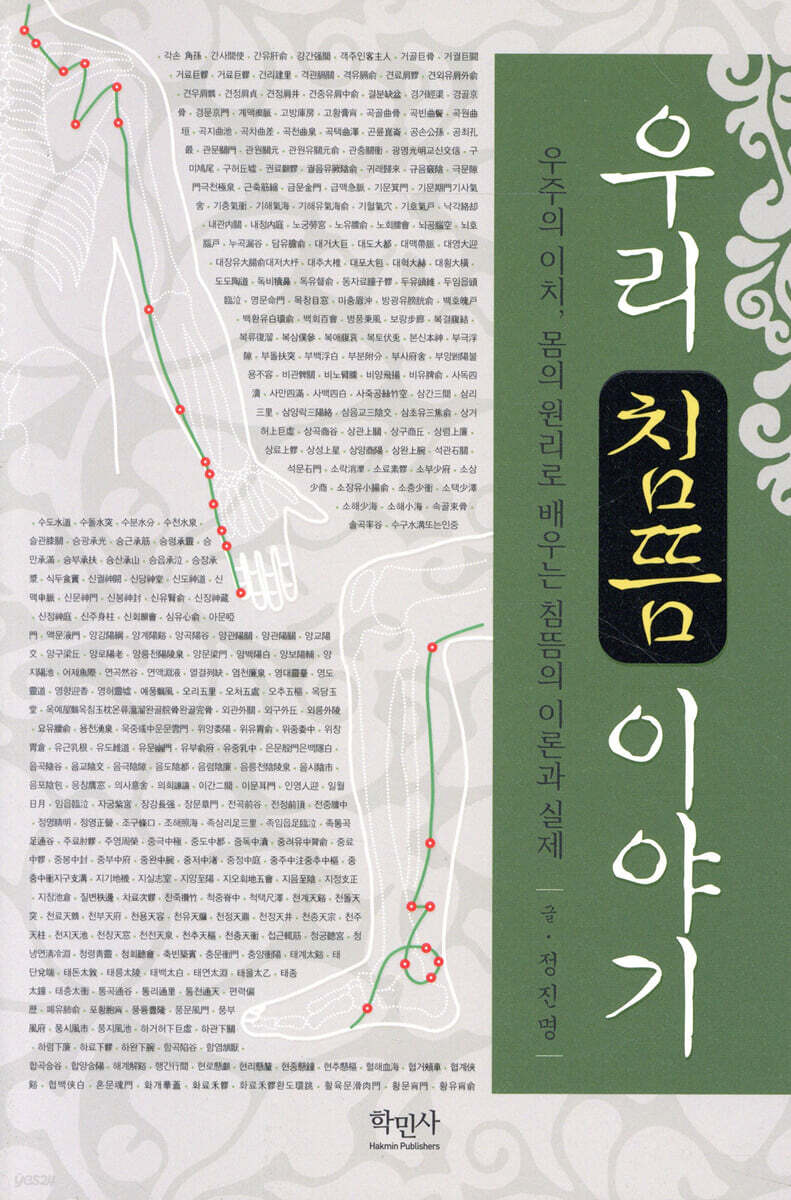 우리 침뜸 이야기
우주의 이치, 몸의 원리로 배우는 침뜸의 이론과 실제
글 · 정진명
, 각손 角孫 , 간사間使 , 간유肝俞 , 강간强關 , 객주인客主人 , 거골巨骨 , 거궐巨闕
, 거료巨髎 , 거료巨髎 , 건리建里 , 격관膈關 , 격유膈俞 , 견료肩髎 , 견외유肩外俞
, 견우肩髃 , 견정肩貞 , 견정肩井 , 견중유肩中俞 , 결분缺盆 , 경거經渠 , 경골京
骨 , 경문京門 , 계맥瘈脈 , 고방庫房 , 고황膏肓 , 곡골曲骨 , 곡빈曲鬢 , 곡원曲
垣 , 곡지曲池 , 곡차曲差 , 곡천曲泉 , 곡택曲澤 , 곤륜崑崙 , 공손公孫 , 공최孔
最 , 관문關門 , 관원關元 , 관원유關元俞 , 관충關衝 , 광명光明교신交信 , 구
미鳩尾 , 구허丘墟 , 권료顴髎 , 궐음유厥陰俞 , 귀래歸來 , 규음竅陰 , 극문隙
門극천極泉 , 근축筋縮 , 금문金門 , 급맥急脈 , 기문箕門 , 기문期門기사氣
舍 , 기충氣衝 , 기해氣海 , 기해유氣海俞 , 기혈氣穴 , 기호氣戶 , 낙각絡却
, 내관內關 , 내정內庭 , 노궁勞宮 , 노유臑俞 , 노회臑會 , 뇌공腦空 , 뇌호
腦戶 , 누곡漏谷 , 담유膽俞 , 대거大巨 , 대도大都 , 대맥帶脈 , 대영大迎
, 대장유大腸俞대저大杼 , 대추大椎 , 대포大包 , 대혁大赫 , 대횡大橫 ,
도도陶道 , 독비犢鼻 , 독유督俞 , 동자료瞳子髎 , 두유頭維 , 두임읍頭
臨泣 , 명문命門 , 목창目窓 , 미충眉沖 , 방광유膀胱俞 , 백호魄戶
, 백환유白環俞 , 백회百會 , 병풍秉風 , 보랑步廊 , 복결腹結 ,
복류復溜 , 복삼僕參 , 복애腹哀 , 복토伏兎 , 본신本神 , 부극浮
隙 , 부돌扶突 , 부백浮白 , 부분附分 , 부사府舍 , 부양跗陽불
용不容 , 비관髀關 , 비노臂臑 , 비양飛揚 , 비유脾俞 , 사독四
瀆 , 사만四滿 , 사백四白 , 사죽공絲竹空 , 삼간三間 , 삼리
三里 , 삼양락三陽絡 , 삼음교三陰交 , 삼초유三焦俞 , 상거
허上巨虛 , 상곡商谷 , 상관上關 , 상구商丘 , 상렴上廉 ,
상료上髎 , 상성上星 , 상양商陽 , 상완上脘 , 석관石關
, 석문石門 , 소락消濼 , 소료素髎 , 소부少府 , 소상
少商 , 소장유小腸俞 , 소충少衝 , 소택少澤
, 소해少海 , 소해小海 , 속골束骨 ,
솔곡率谷 , 수구水溝또는인중
, 수도水道 , 수돌水突 , 수분水分 , 수천水泉 ,
승관膝關 , 승광承光 , 승근承筋 , 승령承靈 , 승
만承滿 , 승부承扶 , 승산承山 , 승읍承泣 , 승장承
漿 , 식두食竇 , 신궐神闕 , 신당神堂 , 신도神道 , 신
맥申脈 , 신문神門 , 신봉神封 , 신유腎俞 , 신장神藏
, 신정神庭 , 신주身柱 , 신회顖會 , 심유心俞 , 아문啞
門 , 액문液門 , 양강陽綱 , 양계陽谿 , 양곡陽谷 , 양관陽關 , 양관陽關 , 양교陽
交 , 양구梁丘 , 양로陽老 , 양릉천陽陵泉 , 양문梁門 , 양백陽白 , 양보陽輔 , 양
지陽池 , 어제魚際 , 연곡然谷 , 연액淵液 , 열결列缺 , 염천廉泉 , 영대靈臺 , 영도
靈道 , 영향迎香 , 영허靈墟 , 예풍翳風 , 오리五里 , 오처五處 , 오추五樞 , 옥당玉
堂 , 옥예屋翳옥침玉枕온류溫溜완골脘骨완골完骨 , 외관外關 , 외구外丘 , 외릉外陵
, 요유腰俞 , 용천湧泉 , 욱중彧中운문雲門 , 위양委陽 , 위유胃俞 , 위중委中 , 위창
胃倉 , 유근乳根 , 유도維道 , 유문幽門 , 유부俞府 , 유중乳中 , 은문殷門은백隱白 ,
음곡陰谷 , 음교陰交 , 음극陰隙 , 음도陰都 , 음렴陰廉 , 음릉천陰陵泉 , 음시陰市 ,
음포陰包 , 응창膺窓 , 의사意舍 , 의희譩譆 , 이간二間 , 이문耳門 , 인영人迎 , 일월
日月 , 임읍臨泣 , 자궁紫宮 , 장강長强 , 장문章門 , 전곡前谷 , 전정前頂 , 전중膻中
, 정명睛明 , 정영正營 , 조구條口 , 조해照海 , 족삼리足三里 , 족임읍足臨泣 , 족통곡
足通谷 , 주료肘髎 , 주영周榮 , 중극中極 , 중도中都 , 중독中瀆 , 중려유中膂俞 , 중료
中髎 , 중봉中封 , 중부中府 , 중완中脘 , 중저中渚 , 중정中庭 , 중주中注중추中樞 , 중
충中衝지구支溝 , 지기地機 , 지실志室 , 지양至陽 , 지오회地五會 , 지음至陰 , 지정支正
, 지창地倉 , 질변秩邊 , 차료次髎 , 찬죽攢竹 , 척중脊中 , 척택尺澤 , 천계天谿 , 천돌天
突 , 천료天髎 , 천부天府 , 천용天容 , 천유天牖 , 천정天鼎 , 천정天井 , 천종天宗 , 천주
天柱 , 천지天池 , 천창天窓 , 천천天泉 , 천추天樞 , 천충天衝 , 첩근輒筋 , 청궁聽宮 , 청
냉연淸冷淵 , 청령靑靈 , 청회聽會 , 축빈築賓 , 충문衝門 , 충양衝陽 , 태계太谿 , 태
단兌端 , 태돈太敦 , 태릉太陵 , 태백太白 , 태연太淵 , 태을太乙 , 태종
太鐘 , 태충太衝 , 통곡通谷 , 통리通里 , 통천通天 , 편력偏
歷 , 폐유肺俞 , 포황胞肓 , 풍륭豊隆 , 풍문風門 , 풍부
風府 , 풍시風市 , 풍지風池 , 하거허下巨虛 , 하관下關
, 하렴下廉 , 하료下髎 , 하완下脘 , 함곡陷谷 , 함염頷厭 ,
합곡合谷 , 합양合陽 , 해계解谿 , 행간行間 , 현로懸顱 , 현리懸釐 , 현종懸鐘 , 현추懸樞 , 혈해血海 , 협거頰車 , 협계俠
谿 , 협백俠白 , 혼문魂門 , 화개華蓋 , 화료禾髎 , 화료禾髎환도環跳 , 활육문滑肉門 , 황문肓門 , 황유肓俞
학민사
Hakmin Publishers
yes24